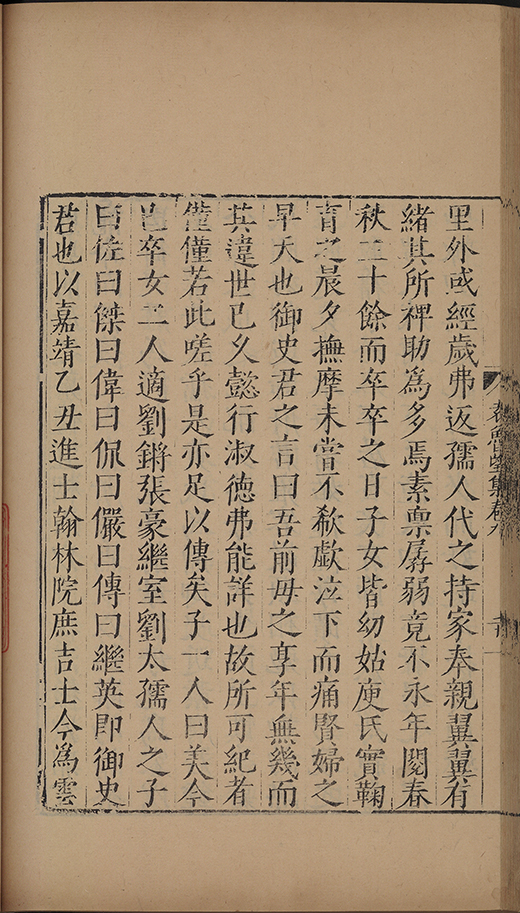 里外或經歲弗返孺人代之持家奉親翼翼有
緒其所裨助為多焉素稟孱弱竟不永年閱春
秋三十餘而卒卒之日子女皆幼姑庾氏實鞠
育之晨夕撫摩未嘗不欷歔泣下而痛賢婦之
早夭也御史君之言曰吾前母之享年無幾而
其違世已久懿行淑德弗能詳也故所可紀者
僅僅若此嗟乎是亦足以傳矣子一人曰美今
已卒女二人適劉鏘張豪繼室劉太孺人之子
曰佐曰傑曰偉曰侃曰儼曰傳曰繼英即御史
君也以嘉靖乙丑進士翰林院庶吉士今為雲
袁魯望集卷九